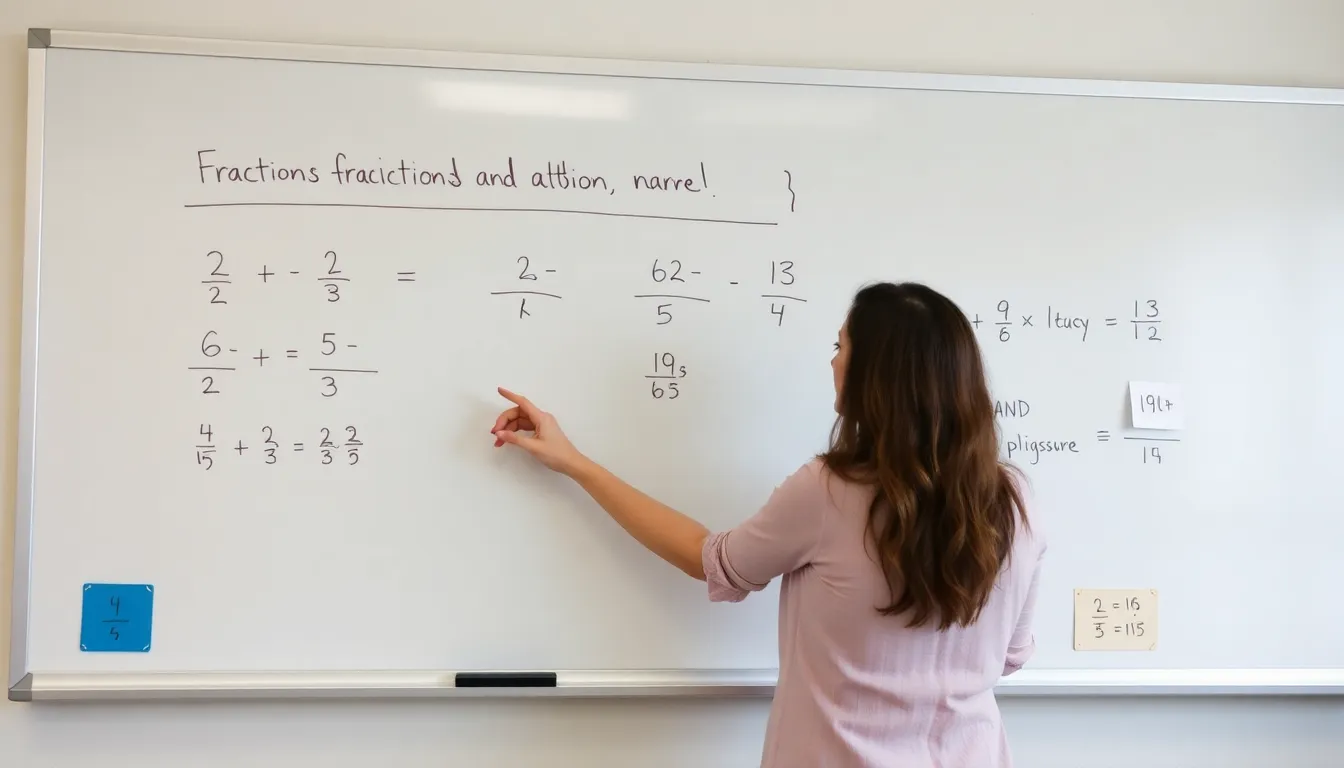 Fractions fracictions and attion, narre!. }
2/2 + - 2/3 = 2-/k 62-/5 - 13/4
6-/2 + = 5-/3 19s/65
4/15 + 2/3 = 2/3 2/5
+ 9/6 × ltucy = 13/12
AND
pligssure ≡ 19(+/14
4/5
2/5 = 16
= 115